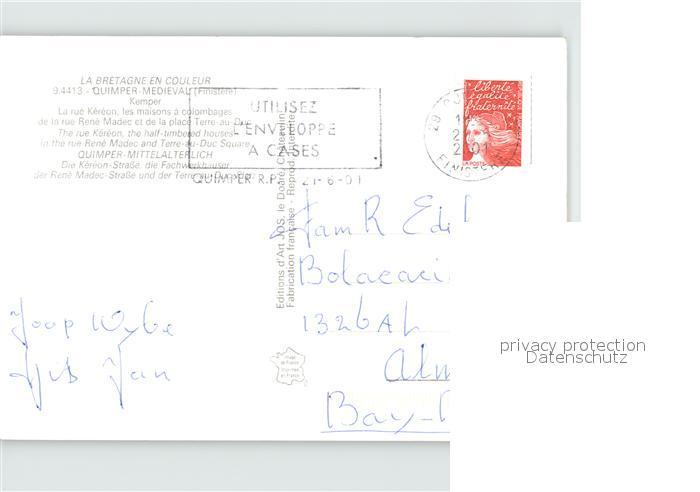 LA BRETAGNE EN COULEUR
9.4413 - QUIMPER-MEDIEVAL (Finistère)
Kemper
La rue Kéréon, les maisons à colombages
de la rue René Madec et de la place Terre-au-Duc
The rue Kéréon, the half-timbered houses
in the rue René Madec and Terre-au-Duc Square
QUIMPER-MITTELALTERLICH
Die Kéréon-Straße, die Fachwerkhäuser
der René Madec-Straße und der Terre-au-Duc
UTILISEZ
L'ENVELOPPE
A CASES
QUIMPER R.P. 21-6-01
Editions d'Art JOS le Doaré, Châteaulin
Fabrication française - Reprod. interdite
29
2001
FINISTERE
liberté
égalité
fraternité
LA POSTE
Fam R
1326AL
Alm
Bay-
Joop Wybe
Jan
Image
de France
Imprimée
en France
privacy protection
Datenschutz